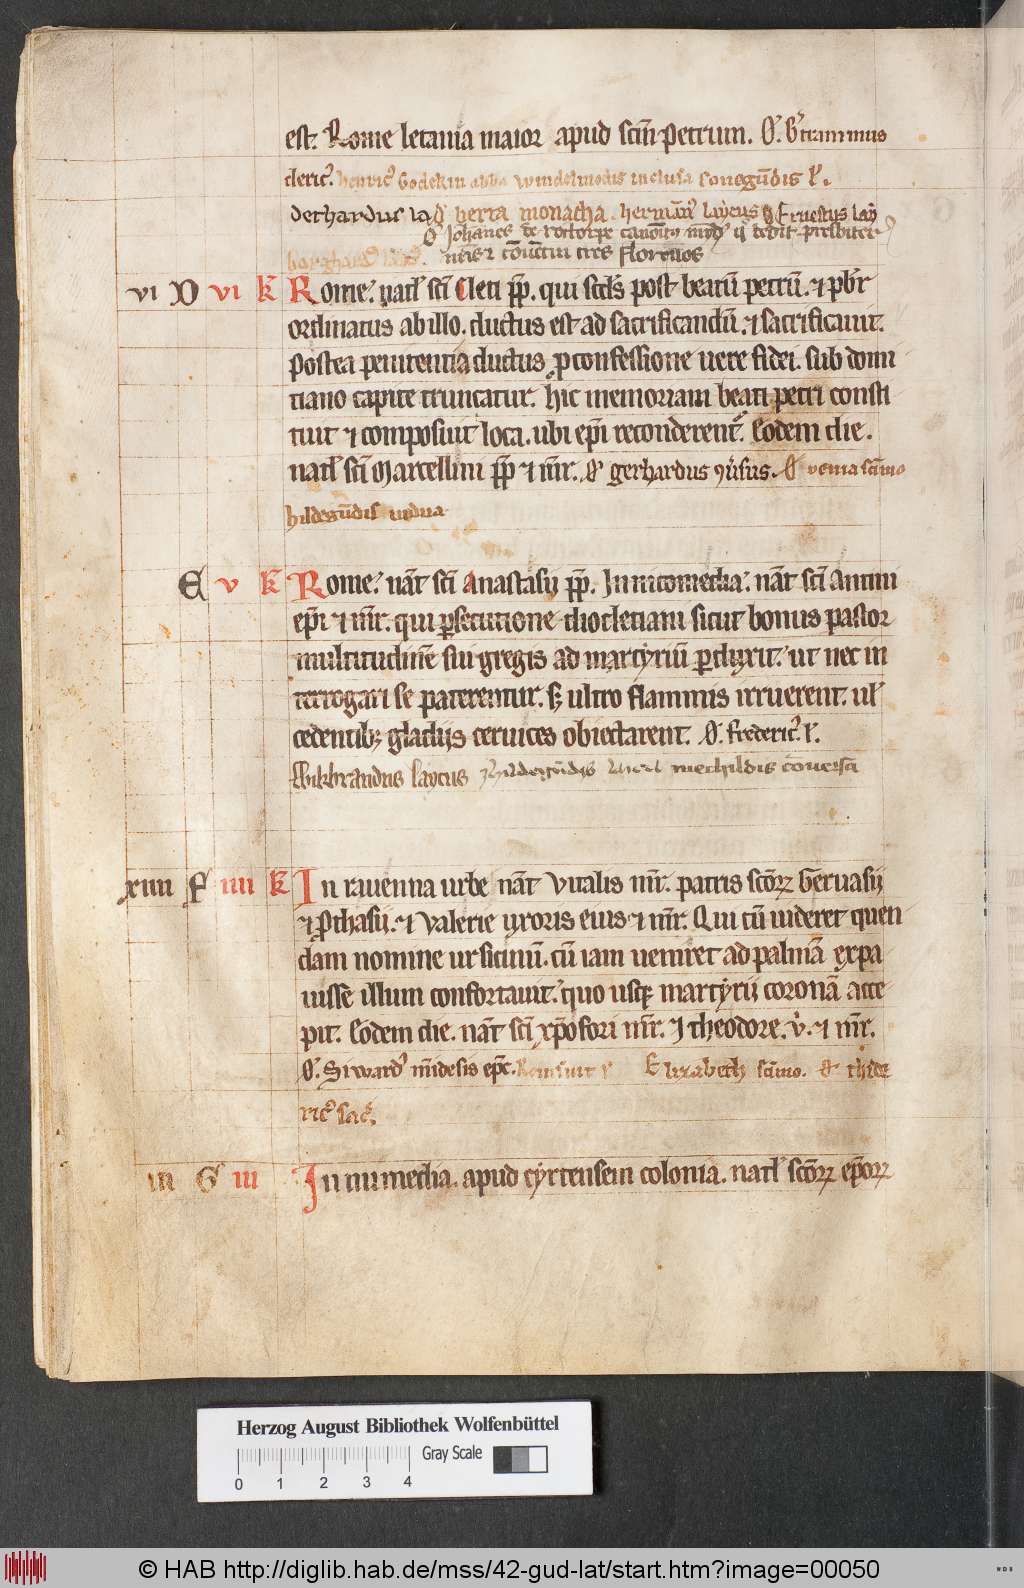 est. Rome letania maior apud scm̄ Petrum. O. 
cleric. henric Godekin abba windelmodis inclusa Conegūdis l.
Dethardus la O berta monacha. herman laycus Ernestus lay
O Johanes de canoic q dedit presbiter
 tres florenos
borghard
vi D vi k Rome. natl sci Cleti pp. qui scds post beatū petrū. ⁊ pbr
ordinatus ab illo. ductus est ad sacrificandū. ⁊ sacrificauit.
Postea penitentia ductus pro confessione uere fidei. sub domi
tiano capite truncatur. hic memoriam beati petri consti
tuit ⁊ composuit loca. ubi epi reconderent. Eodem die.
natl sci Marcellini pp ⁊ mr. O gerhardus 
hildegūdis uidua
E v k Rome. nat sci Anastasij pp. In nicomedia. nat sci Antimi
epi ⁊ mr. qui psecutione diocletiani sicut bonus pastor
multitudinē sui gregis ad martyriū pduxit. ut nec in
terrogari se paterentur. s ultro flammis irruerent. ul
cedentib gladijs ceruices obiectarent. O. frederic. l.
Wikbrandus laycus hildegūdis mechildis conuersa
xiiii F iiii k In rauenna urbe nat Vitalis mr. patris scorꝝ Geruasij
⁊ Pthasij. ⁊ Valerie uxoris eius ⁊ mr. Qui cū uideret quen
dam nomine ursicinū. cū iam ueniret ad palmā expa
uisse illum confortauit. quo usq martyrij coronā acce
pit. Eodem die. nat sci xpofori mr. ⁊ theodore. v. ⁊ mr.
O. Siward mīdesis epc. Elizabeth scimo. O thide
ric sac.
iii G iii In numedia. apud cyrtensem colonia. natl scorꝝ eporꝝ
Herzog August Bibliothek Wolfenbüttel
Gray Scale
0 1 2 3 4
© HAB http://diglib.hab.de/mss/42-gud-lat/start.htm?image=00050